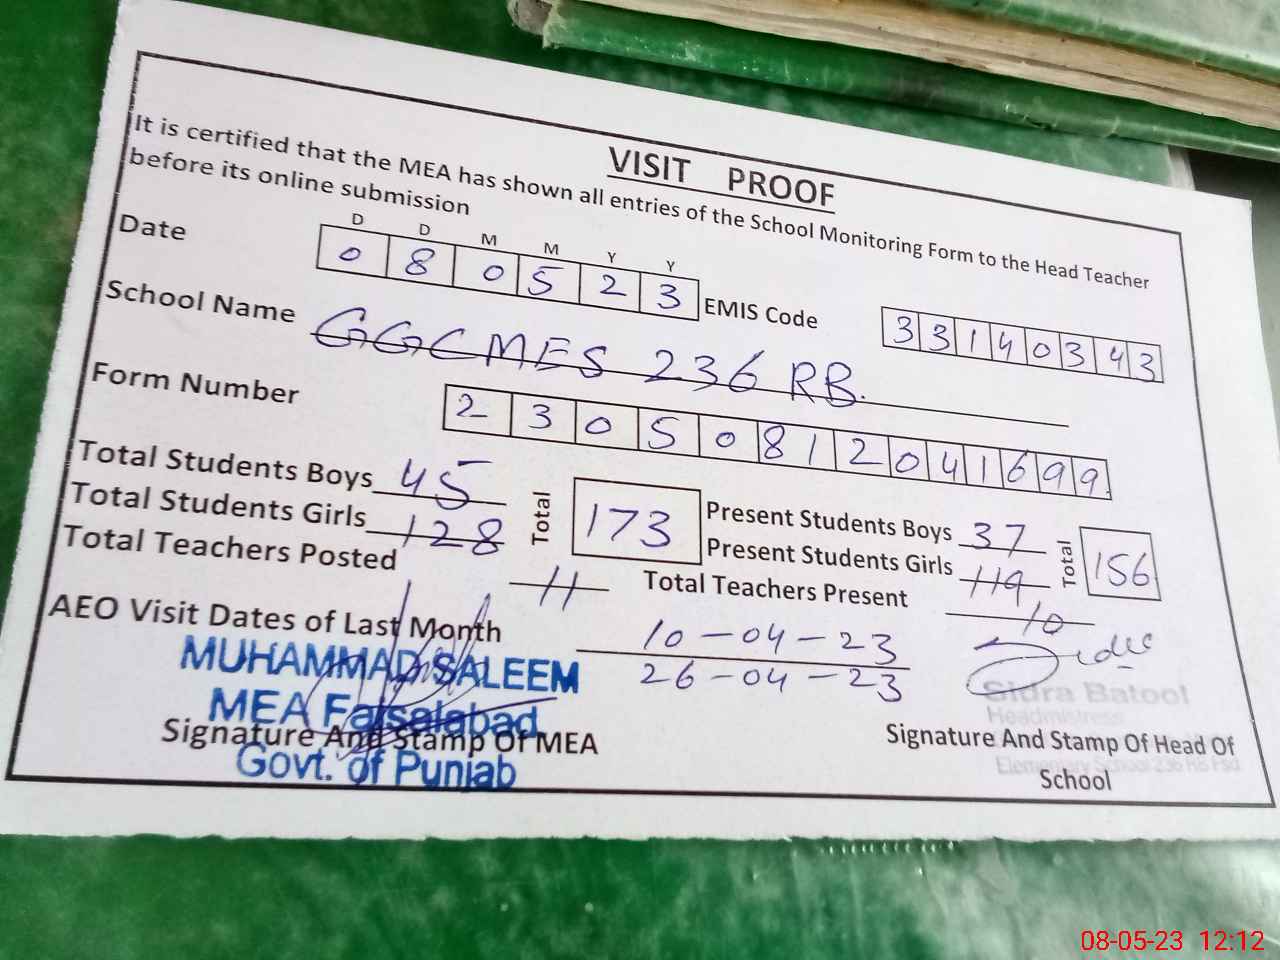 VISIT PROOF
It is certified that the MEA has shown all entries of the School Monitoring Form to the Head Teacher
before its online submission
D D M M Y Y
Date 0 8 0 5 2 3 EMIS Code 3 3 1 4 0 3 4 3
School Name GGCMES 236 RB.
Form Number 2 3 0 5 0 8 1 2 0 4 1 6 9 9
Total Students Boys 45 Total 173 Present Students Boys 37 Total 156
Total Students Girls 128 Present Students Girls 119
Total Teachers Posted 11 Total Teachers Present 10
AEO Visit Dates of Last Month 10-04-23
26-04-23
MUHAMMAD SALEEM
MEA Faisalabad
Govt. of Punjab
Signature And Stamp Of MEA
Sidra Batool
Headmistress
Elementary School 236 RB Fsd
Signature And Stamp Of Head Of
School
08-05-23 12:12